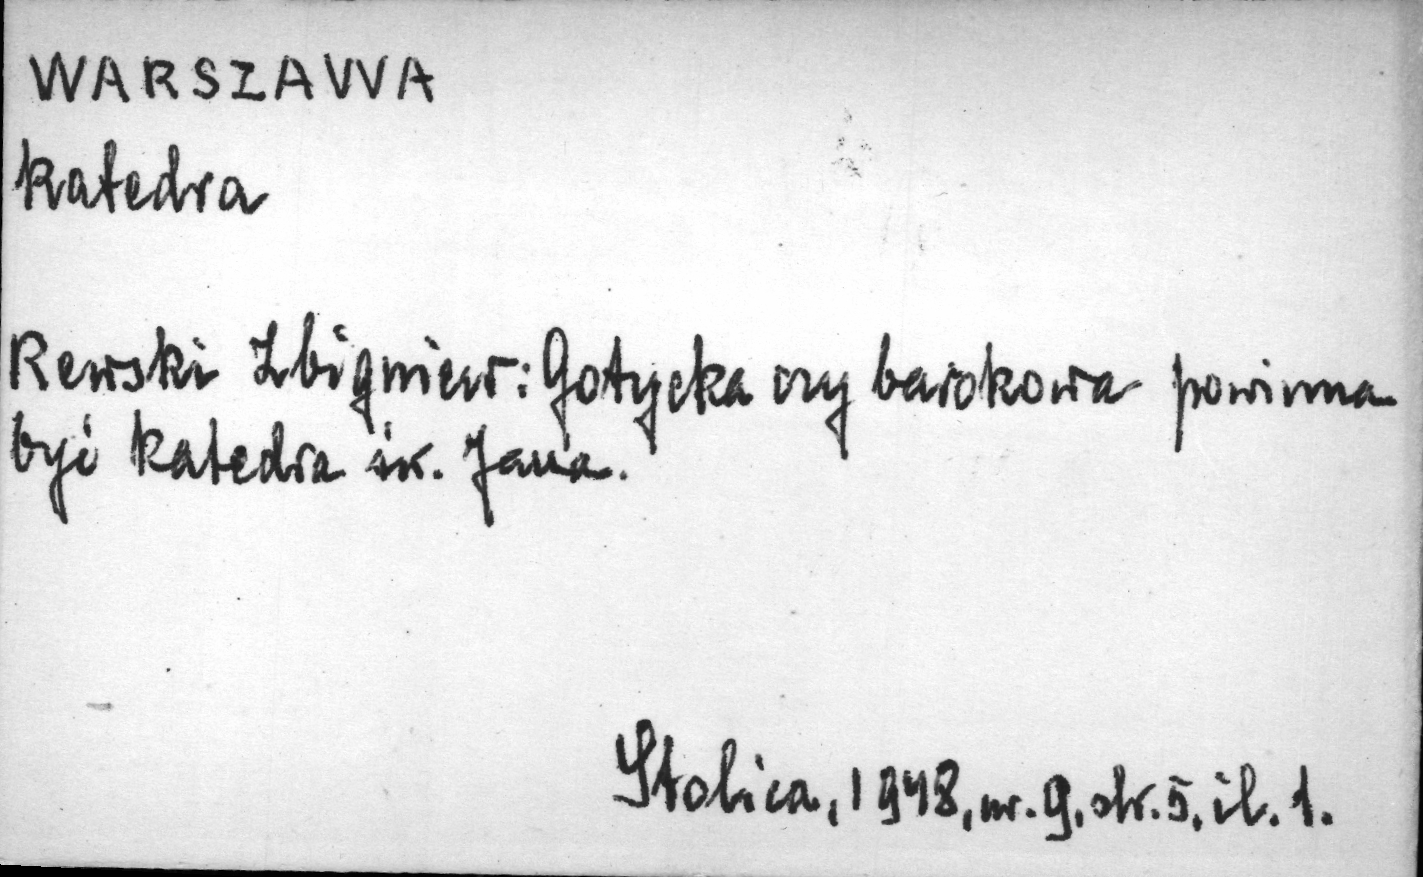 WARSZAWA
Katedra
Rewski Zbigniew: Gotycka czy barokowa powinna
być katedra św. Jana.
Stolica, 1948, nr. 9, str. 5, il. 1.